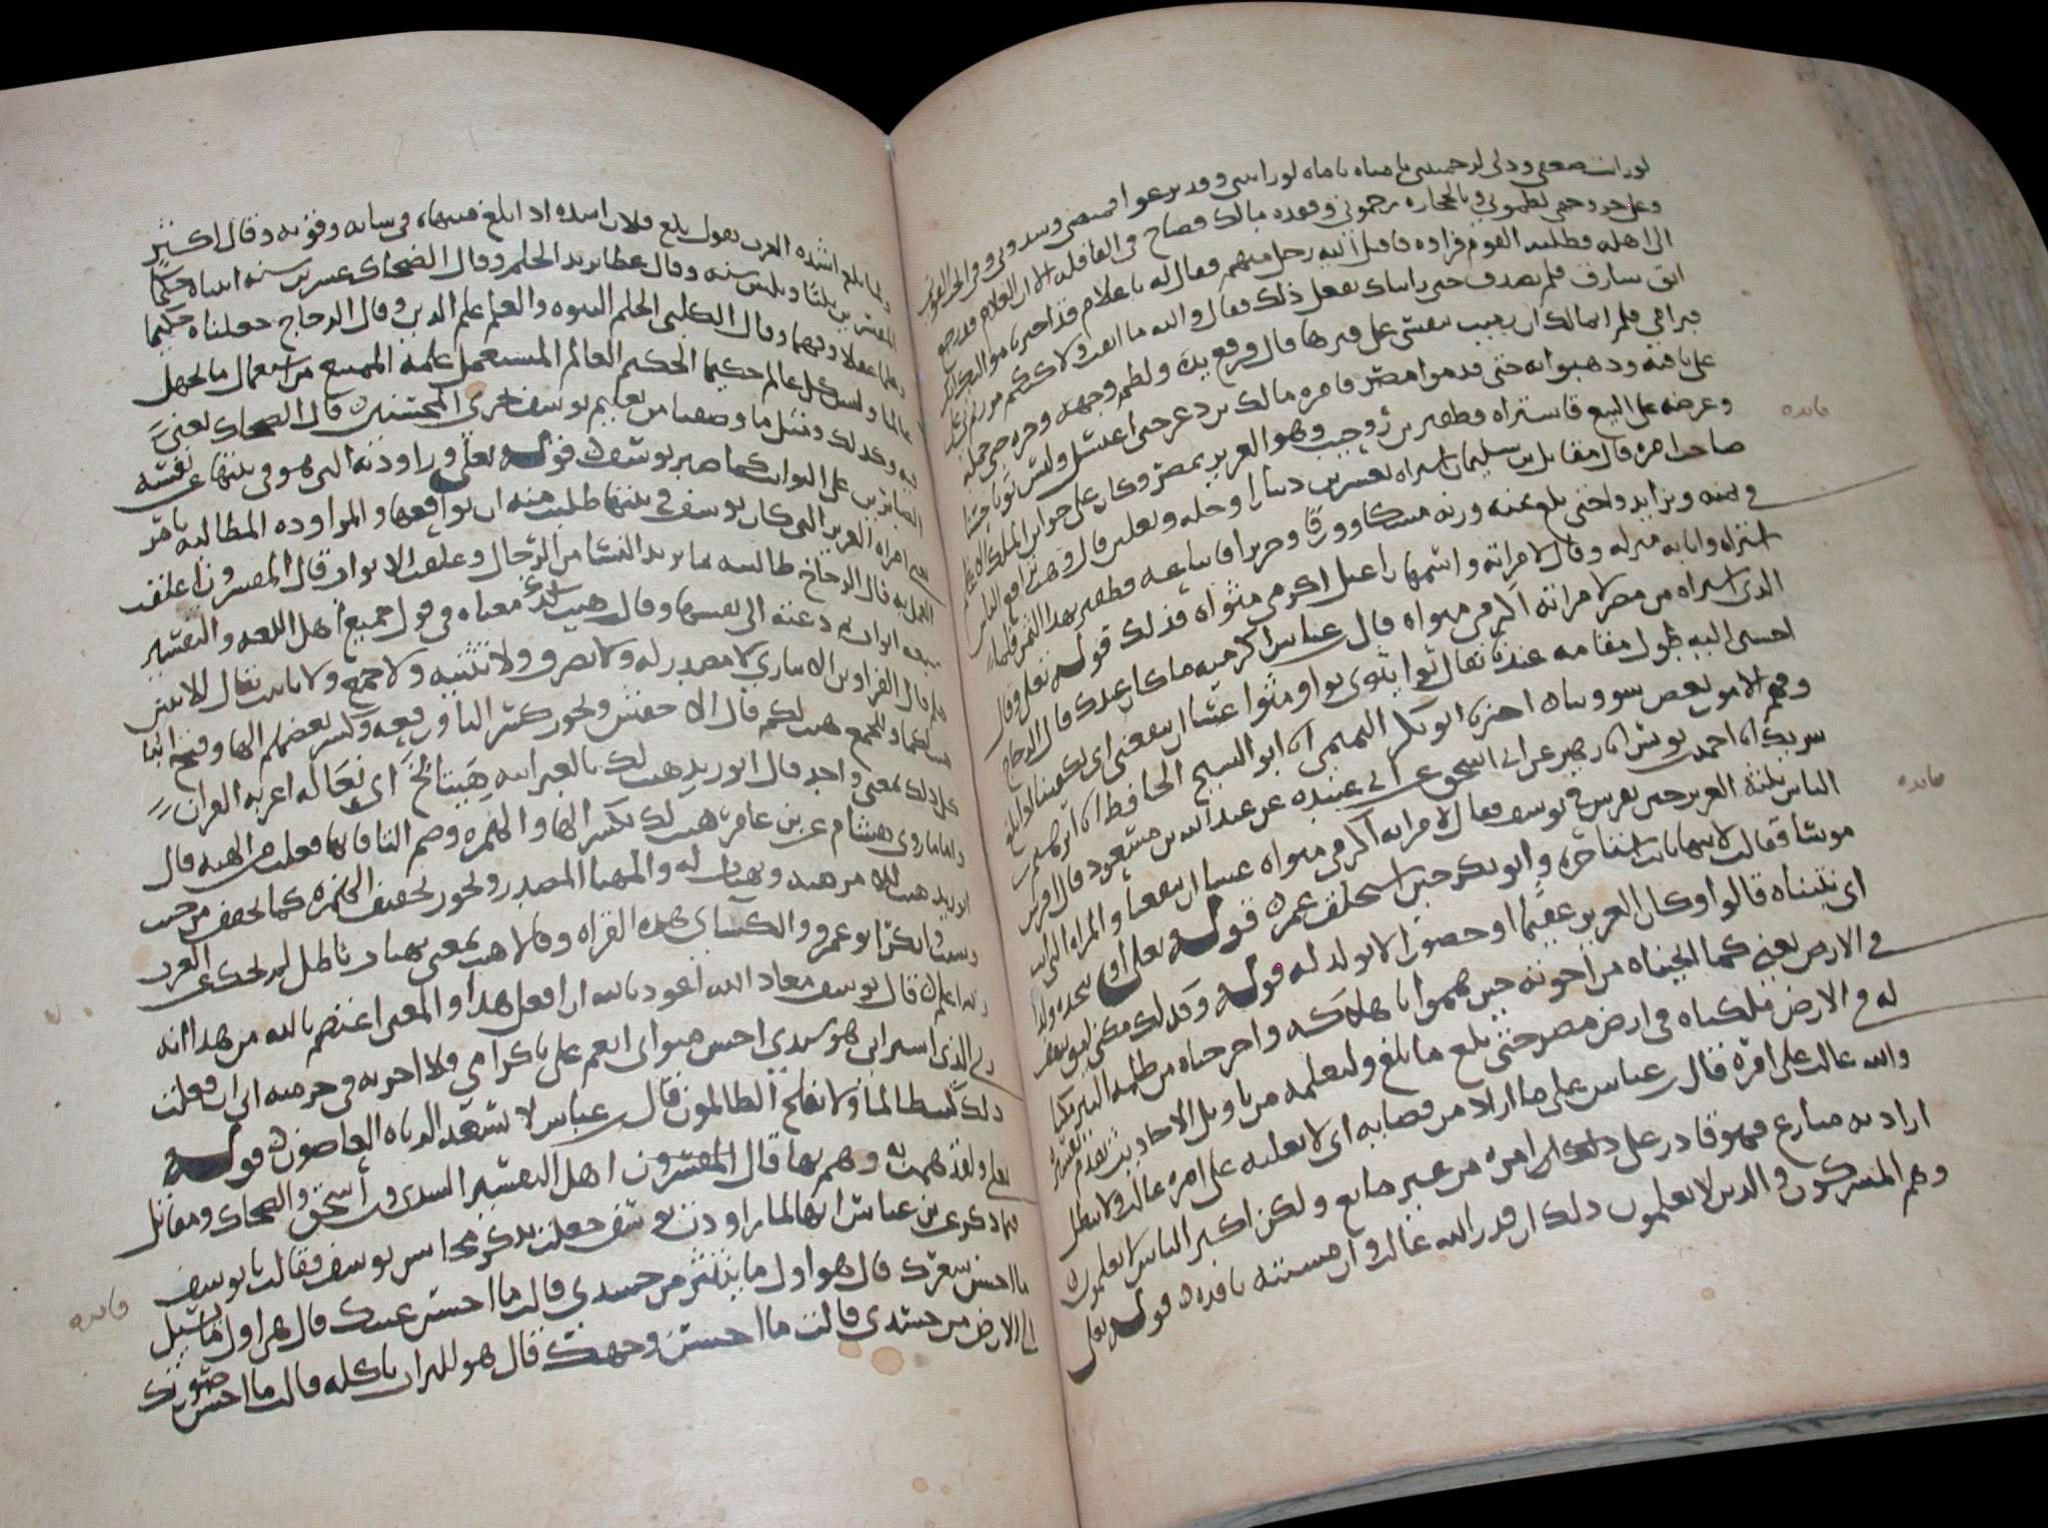 الى اهله وطلبه القوم فراوه فاقبل اليه رجل منهم فقال له يا غلام قد اخبرنا مواليك انك
ابق سارق فلم نصدق حتى رايناك تفعل ذلك فقال والله ما ابقت ولكنكم مررتم بي على
قبر امي فلم اتمالك ان رميت بنفسي على قبرها قال فرفع يده ولطم وجهه وجره حتى حمله
على ناقته وذهبوا به حتى قدموا مصر فامره مالك بن دعر حتى اغتسل ولبس ثوبا حسنا
وعرضه على البيع فاشتراه قطفير بن روحيب وهو العزيز بمصر وكان على خزاين الملك
فايده
صاحب امره قال مقاتل بن سليمان اشتراه بعشرين دينارا وحله ونعلين قال وهب اقام الناس
في ثمنه وتزايدوا حتى بلغ ثمنه وزنه مسكا وورقا وحريرا فابتاعه قطفير بهذا الثمن فلما
اشتراه واتا به منزله وقال لامراته واسمها راعيل اكرمي مثواه فذلك قوله تعالى وقال
الذي اشتراه من مصر لامراته اكرمي مثواه قال عباس اكرميه ما كان عندك قال الزجاج
احسني اليه طول مقامه عندنا يقال ثوا يثوي ثوا ومثوا عسى ان ينفعنا اي يكفينا اذا بلغ
وفهم الامور بعض شووننا اخبرنا ابو بكر التميمي انا ابو الشيخ الحافظ انا ابراهيم بن
شريك انا احمد بن يونس انا زهير عن ابي اسحق عن ابي عبيده عن عبد الله بن مسعود قال افرس
فايده
الناس ثلثة العزيز حين تفرس في يوسف فقال لامراته اكرمي مثواه عسى ان ينفعنا والمراه التي اتت
موسى فقالت لابيها يا ابت استاجره وابو بكر حين استخلف عمر قوله تعالى او نتخذه ولدا
اي نتبناه قالوا وكان العزيز عقيما او حصورا لا يولد له قوله وكذلك مكنا ليوسف
في الارض يعني كما انجيناه من اخوته حين هموا باهلاكه واخرجناه من ظلمة البير مكنا
له في الارض فملكناه في ارض مصر حتى بلغ ما بلغ ولنعلمه من تاويل الاحاديث تقدم تفسيره
والله غالب على امره قال عباس على ما اراد من قضايه اي لا يغلبه على امره غالب ولا يبطل
ارادته منازع فهو قادر على ذلك امره من غير مانع ولكن اكثر الناس لا يعلمون
وهم المشركون والذين لا يعلمون ذلك ان قدر الله غالب وان مشيته نافذه قوله تعلى
ولما بلغ اشده العرب تقول بلغ فلان اشده اذا بلغ منتهاه في شبابه وقوته وقال اكثر
المفسرين ثلثا وثلثين سنه وقال عطا يريد الحلم وقال الضحاك عشرين سنه اتيناه حكما
وعلما عقلا وفهما وقال الكلبي الحكم النبوه والعلم علم الدين وقال الزجاج جعلناه حكيما
عالما وليس كل عالم حكيما الحكيم العالم المستعمل علمه الممتنع من استعمال ما يجهل
فيه وكذلك ومثل ما وصفنا من تعليم يوسف نجزي المحسنين قال الضحاك يعني
الصابرين على النوايب كما صبر يوسف قوله تعلى وراودته التي هو في بيتها عن نفسه
يعني امراه العزيز التي كان يوسف في بيتها طلبت منه ان يواقعها والمراوده المطالبه بامر
العمل به قال الزجاج طالبته بما يريد النسا من الرجال وغلقت الابواب قال المفسرون اغلقت
سبعه ابواب ثم دعته الى نفسها وقالت هيت لك معناه في قول جميع اهل اللغه والتفسير
هلم قال الفرا وابن الانباري لا مصدر له ولا تصرف ولا تثنيه ولا جمع ولا تانيث يقال للاثنين
هيت لكما وللجمع هيت لكم قال الاخفش ويجوز كسر التا ورفعه وكسر بعضهم الها وفتح التا
كل ذلك بمعنى واحد قال ابو زيد هيت لك بالعبرانيه هيتالخ اي تعاله اعربه القران
واما ما روى هشام عن بن عامر هئت لك بكسر الها والهمزه وضم التا فانها فعلت من الهيه قال
ابو زيد هيت للامر هيه وتهيات له والمهيا المصدر ويجوز تخفيف الهمزه كما تخفف من جيت
وشيت وانكر ابو عمرو والكساي هذه القراه وقالا هيت بمعنى تهيات باطل لم تحك عن العرب
والله اعلم قال يوسف معاذ الله اعوذ بالله ان افعل هذا والمعنى اعتصم بالله من هذا انه
ربي الذي اشتراني هو سيدي احسن مثواي انعم علي باكرامي فلا اخونه في حرمته اني ان فعلت
ذلك كنت ظالما ولا يفلح الظالمون قال عباس لا يسعد الزناه العاصون قوله
تعلى ولقد همت به وهم بها قال المفسرون اهل التفسير السدي وبن اسحق والضحاك ومقاتل
فيما ذكر عن بن عباس انها لما راودت يوسف جعلت تذكر محاسن يوسف فقالت يا يوسف
ما احسن شعرك قال هو اول ما ينتثر من جسدي قالت ما احسن عينيك قال هي اول ما يسيل
فايده
الى الارض من جسدي قالت ما احسن وجهك قال هو للتراب ياكله قالت ما احسن صورتك